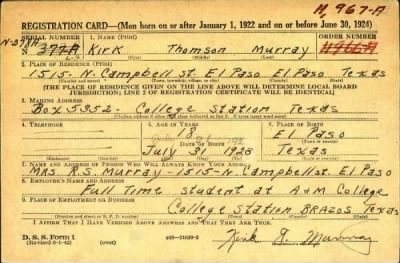 M. 967-A
REGISTRATION CARD—(Men born on or after January 1, 1922 and on or before June 30, 1924)
SERIAL NUMBER 1. NAME (Print) ORDER NUMBER
N-378A
N 377-A Kirk Thomson Murray
2. PLACE OF RESIDENCE (Print)
1515-N. Campbell St. El Paso El Paso Texas
(THE PLACE OF RESIDENCE GIVEN ON THE LINE ABOVE WILL DETERMINE LOCAL BOARD
JURISDICTION; LINE 2 OF REGISTRATION CERTIFICATE WILL BE IDENTICAL)
3. MAILING ADDRESS
Box 5352- College Station Texas
4. TELEPHONE 5. AGE IN YEARS 6. PLACE OF BIRTH
18 El Paso
DATE OF BIRTH
July 31 1923 Texas
7. NAME AND ADDRESS OF PERSON WHO WILL ALWAYS KNOW YOUR ADDRESS
Mrs. R.S. Murray-1515-N. Campbell st. El Paso
8. EMPLOYER'S NAME AND ADDRESS
Full Time student at A+M College
9. PLACE OF EMPLOYMENT OR BUSINESS
College Station Brazos Texas
I AFFIRM THAT I HAVE VERIFIED ABOVE ANSWERS AND THAT THEY ARE TRUE.
D. S. S. Form 1
(Revised 6-1-42)
Kirk T. Murray